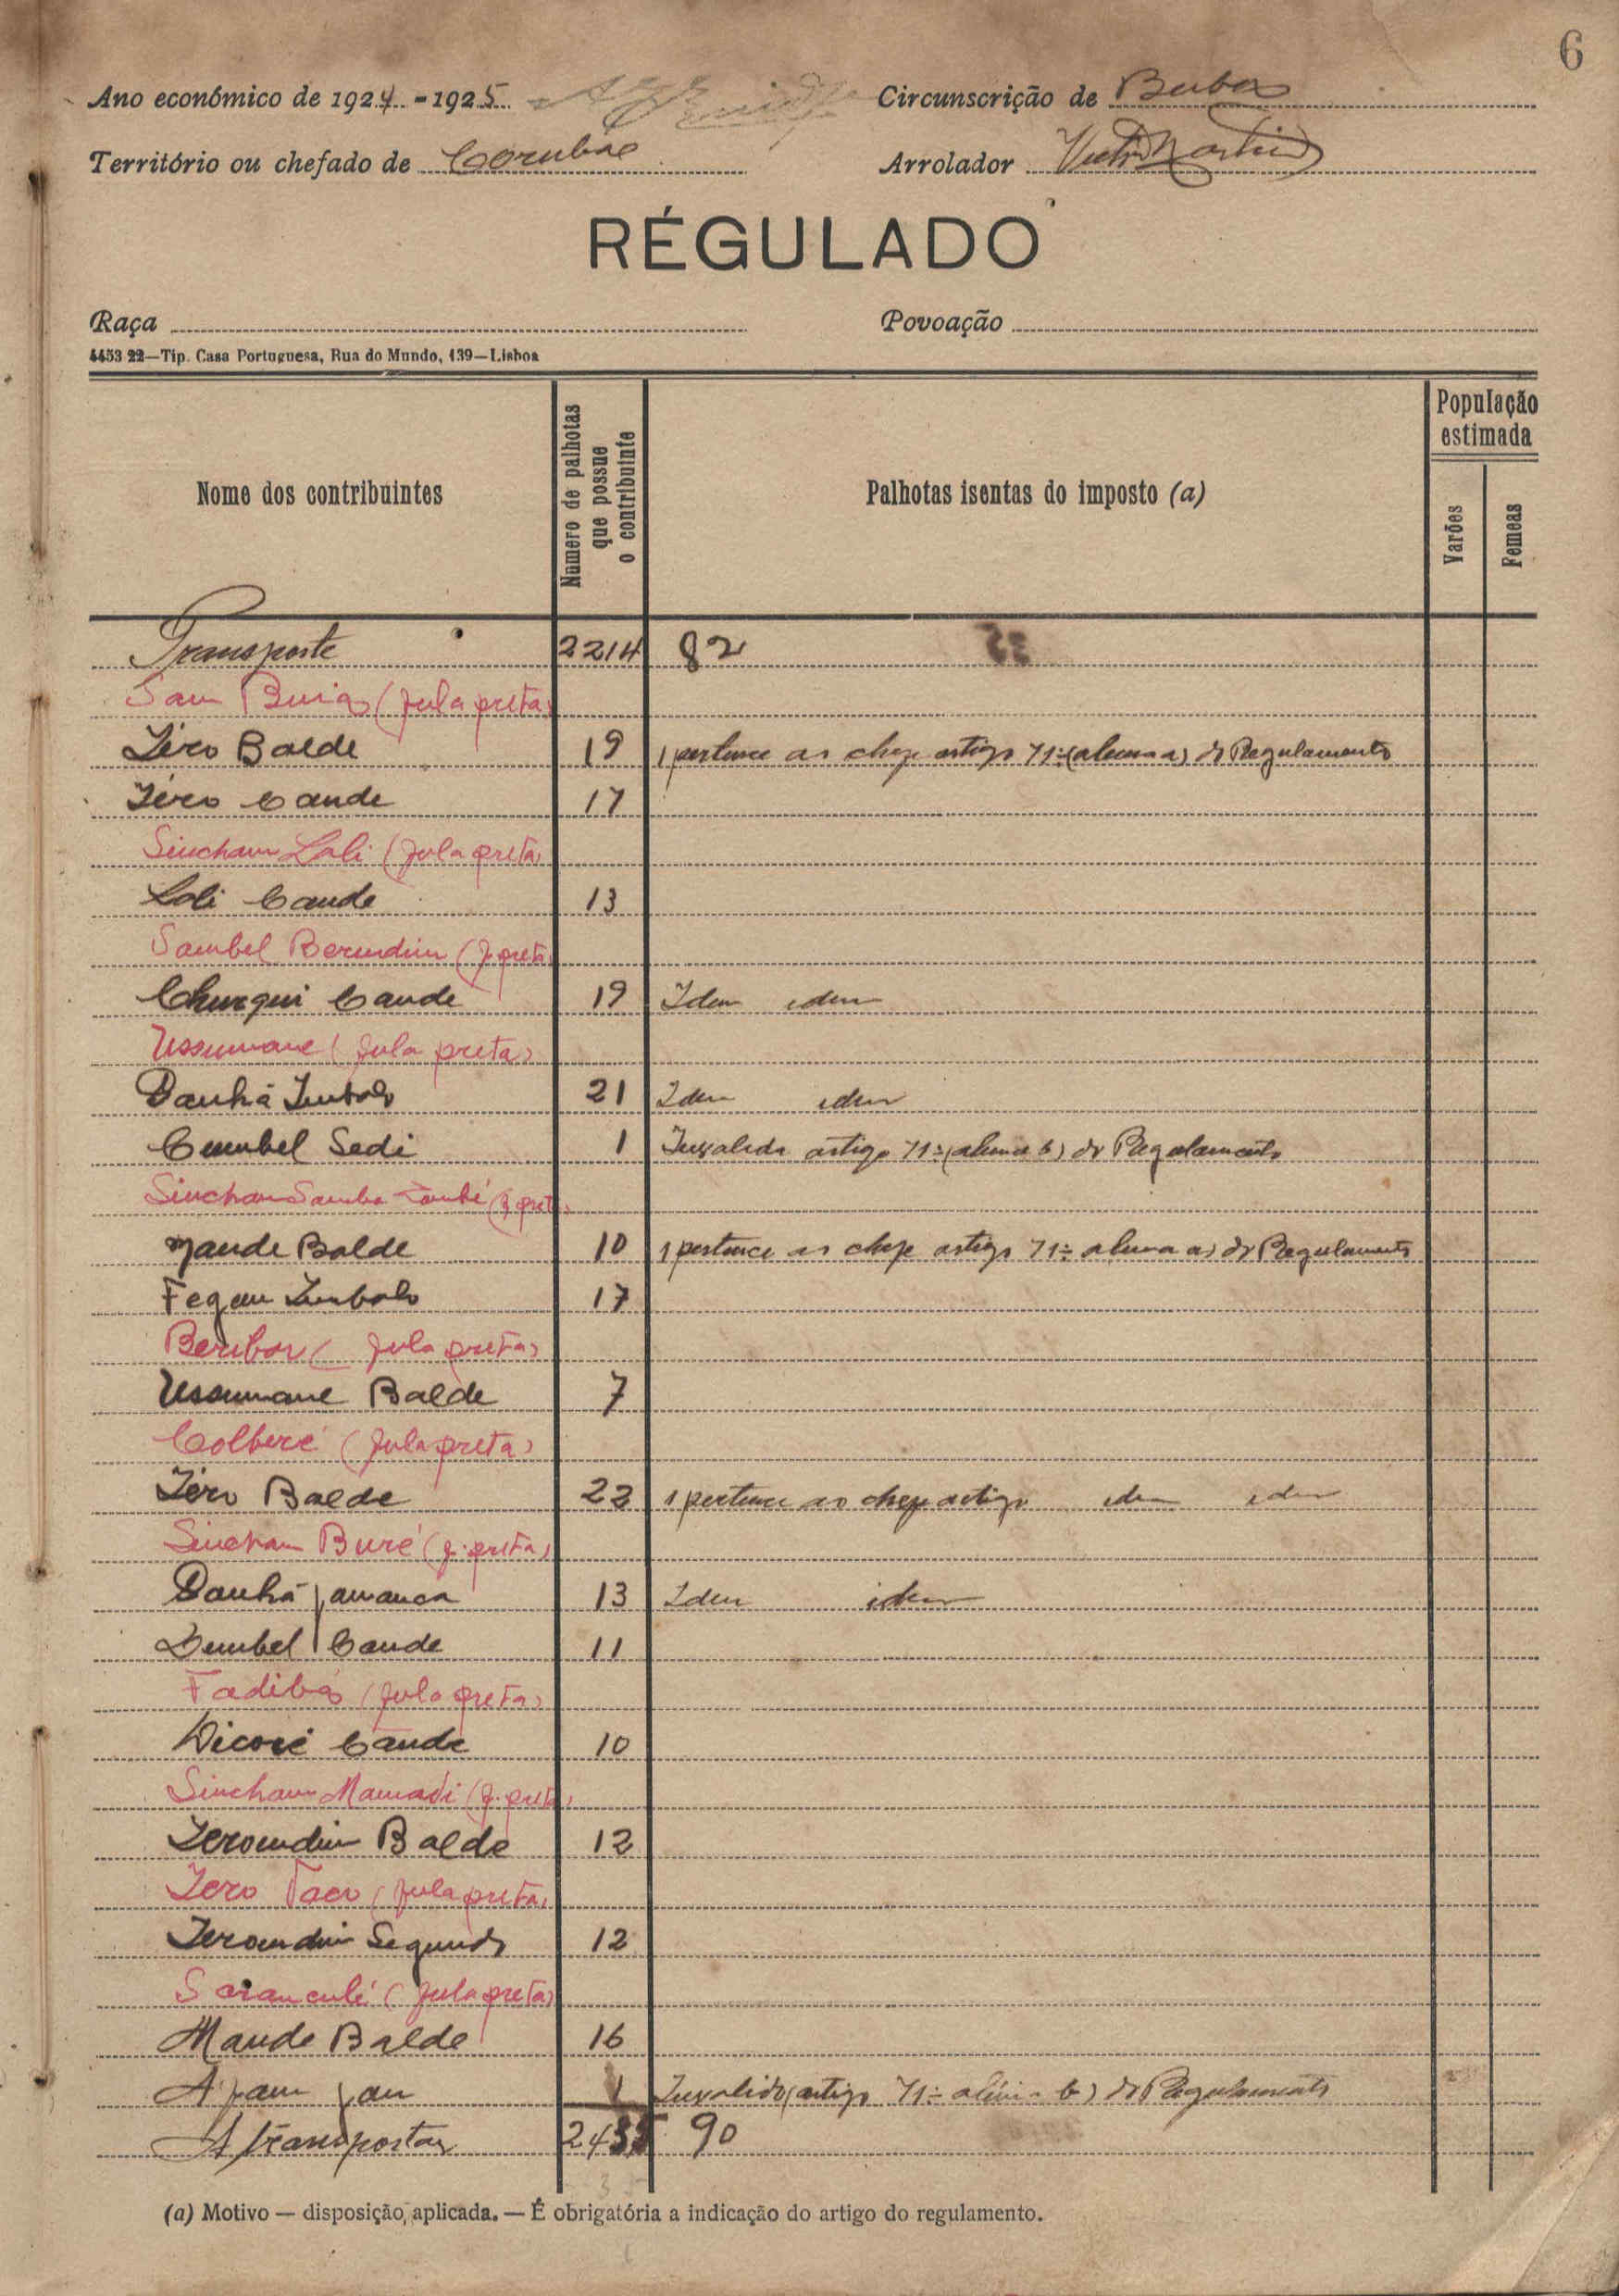 6
Ano económico de 1924 - 1925
Circunscrição de Buba
Território ou chefado de Corubal
Arrolador Victor Martins
RÉGULADO
Raça
Povoação
4453 22—Tip. Casa Portuguesa, Rua do Mundo, 139—Lisboa
Nome dos contribuintes
Número de palhotas que possue o contribuinte
Palhotas isentas do imposto (a)
População estimada
Varões
Femeas
Transporte 2214 82
Sam (fula preta)
Iéro Balde 19 1 pertence ao chefe artigo 71º (alinea a) do Regulamento
Iéro Cande 17
Sincham Lali (fula preta)
Lali Cande 13
Sambel Berendim (f. preta)
Churqui Cande 19 Idem idem
Ussumane (fula preta)
Danhá Embalo 21 Idem idem
Cumbel Sedi 1 Invalido artigo 71º (alinea b) do Regulamento
Sincham Samba (f. preta)
Mande Balde 10 1 pertence ao chefe artigo 71º alinea a) do Regulamento
Embalo 17
(fula preta)
Ussumane Balde 7
Colberé (fula preta)
Iéro Balde 22 1 pertence ao chefe artigo idem idem
Sincham Buré (f. preta)
Danhá Jamanca 13 Idem idem
Dembel Cande 11
Fadibá (fula preta)
Dicori Cande 10
Sincham Mamadi (f. preta)
Ieroendim Balde 12
Iero (fula preta)
Ieroendim Segundo 12
Saranculé (fula preta)
Mande Balde 16
1 Invalido (artigo 71º alinea b) do Regulamento
A transportar 2435 90
(a) Motivo — disposição, aplicada. — É obrigatória a indicação do artigo do regulamento.